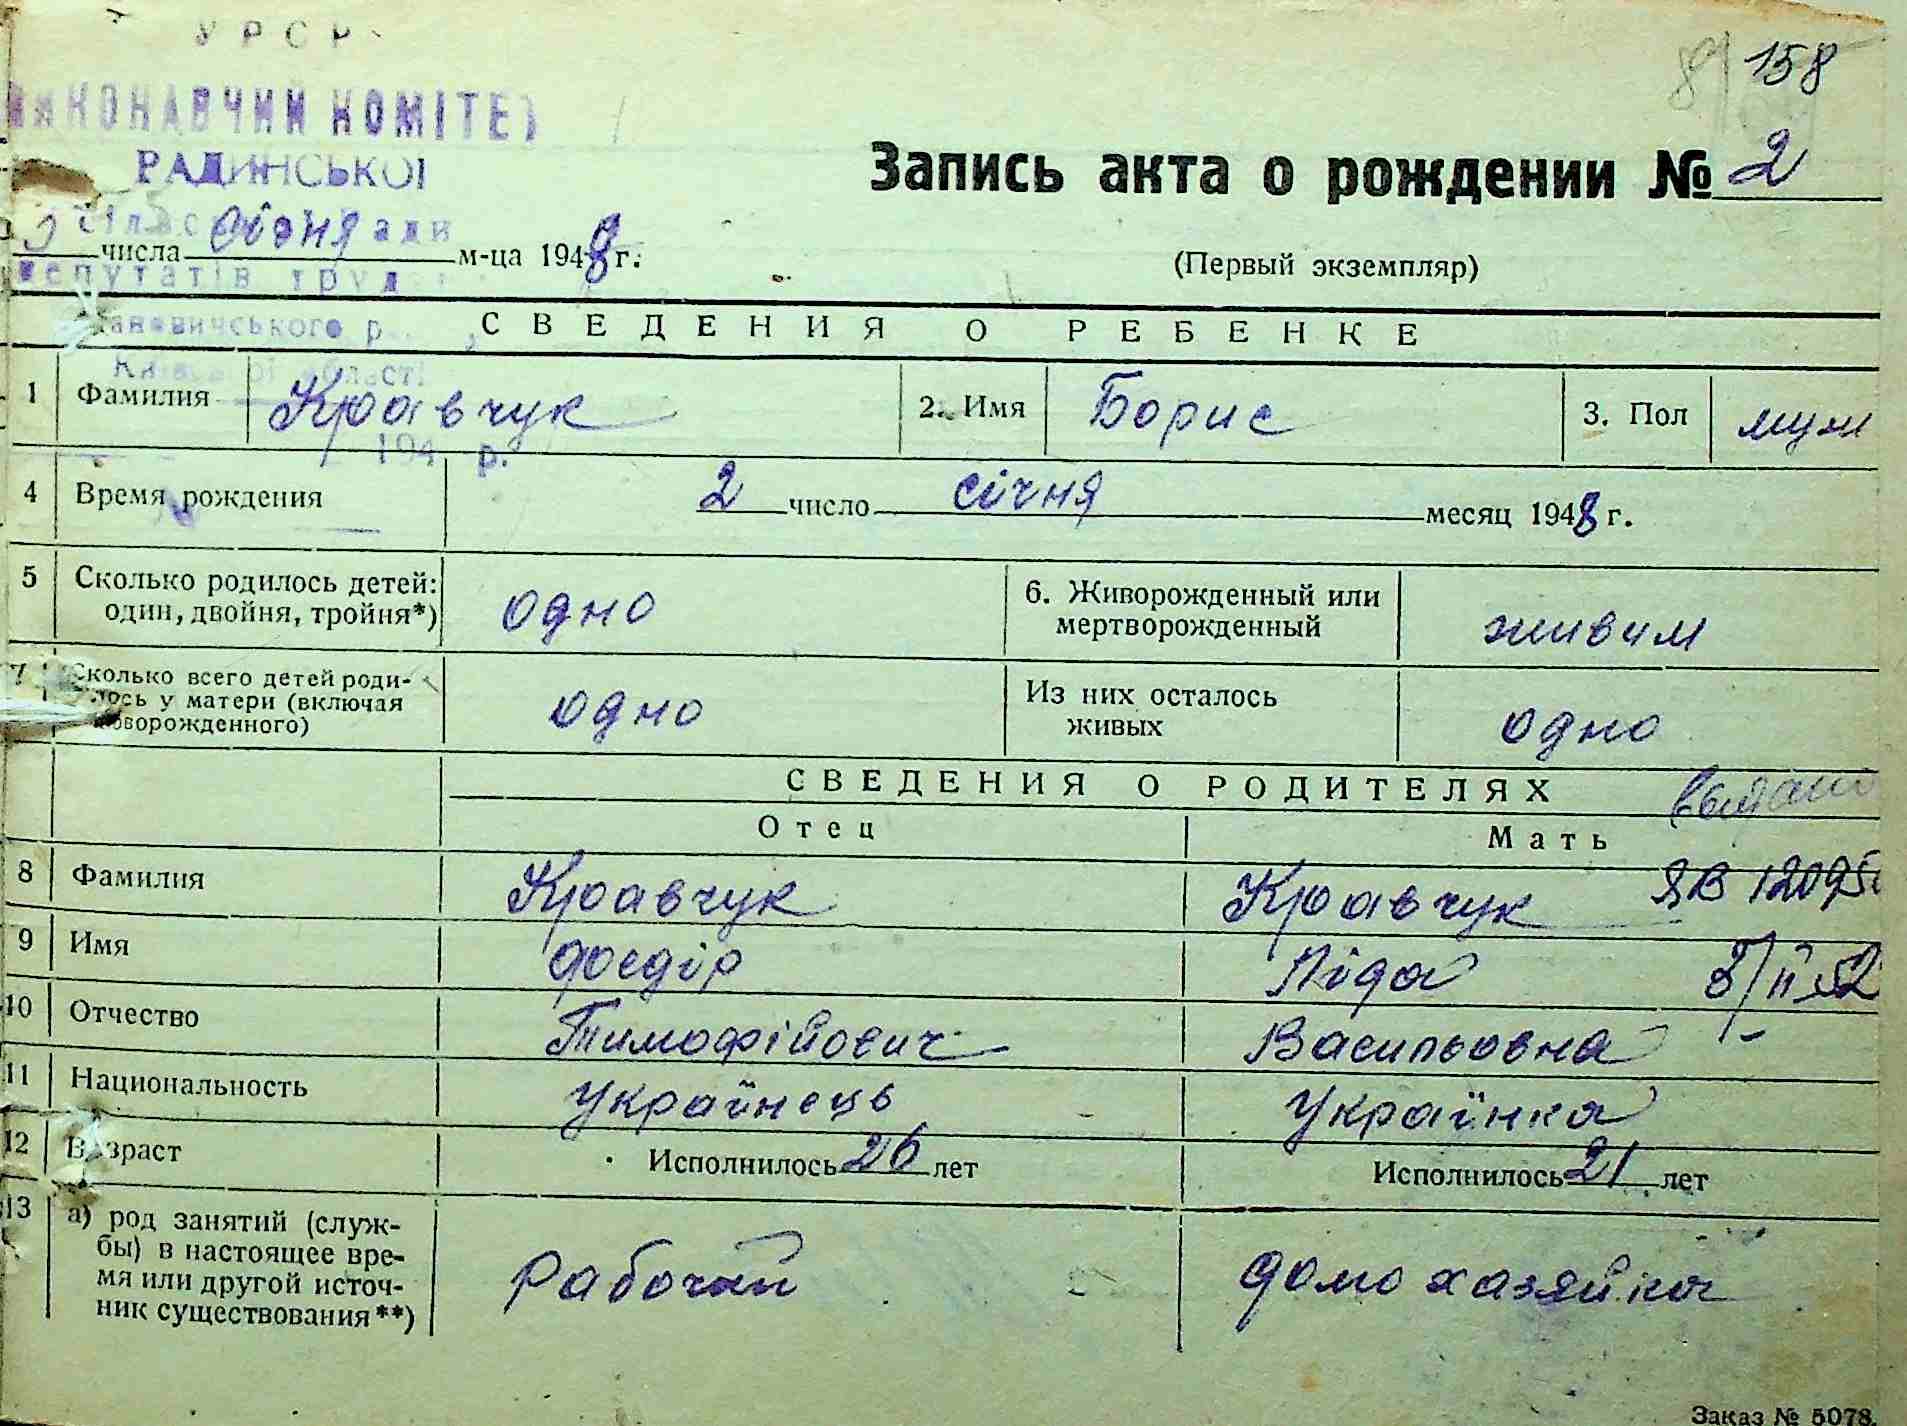 УРСР
ВИКОНАВЧИЙ КОМІТЕТ
РАДИНСЬКОЇ
депутатів труд
Київської області
194 р.
158
Запись акта о рождении № 2
числа січня м-ца 1948 г.
(Первый экземпляр)
СВЕДЕНИЯ О РЕБЕНКЕ
1 Фамилия Кравчук 2. Имя Борис 3. Пол муж
4 Время рождения 2 число січня месяц 1948 г.
5 Сколько родилось детей: один, двойня, тройня*) одно 6. Живорожденный или мертворожденный живим
7 Сколько всего детей родилось у матери (включая новорожденного) одно Из них осталось живых одно
СВЕДЕНИЯ О РОДИТЕЛЯХ
Отец Мать
8 Фамилия Кравчук Кравчук ЯВ 12095
9 Имя Фоєдір Ліда 8/II 52
10 Отчество Тимофійович Васильовна
11 Национальность Українець Українка
12 Возраст Исполнилось 26 лет Исполнилось 21 лет
13 а) род занятий (служ-
бы) в настоящее вре-
мя или другой источ-
ник существования**) рабочий домохазяйка
Заказ № 5078.